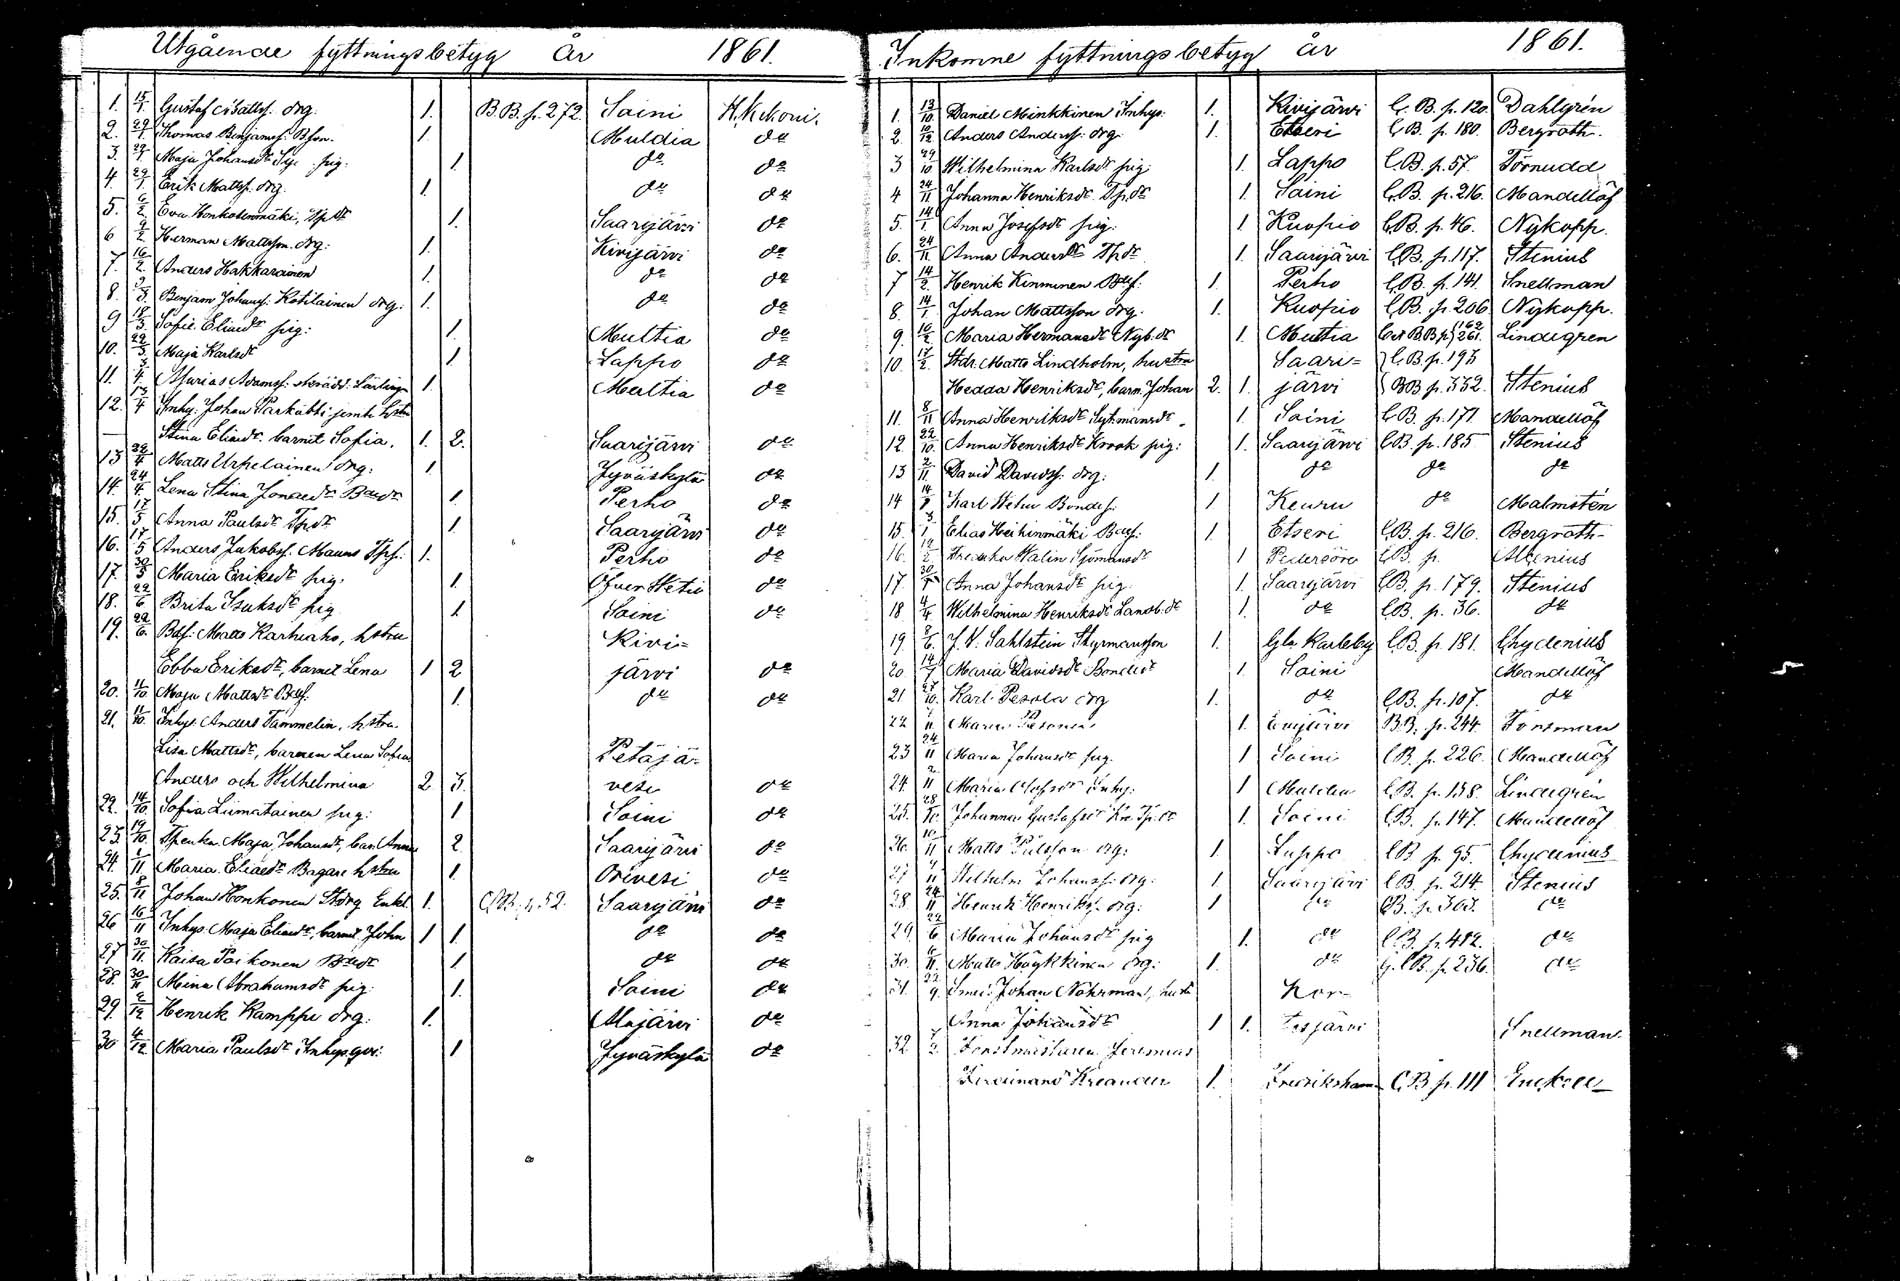 Utgående flyttningsbetyg År 1861.
1. 15/1 Gustaf Mattsf. drg. 1. BB. p. 272 Soini H. Kekoni.
2. 29/1 Thomas Benjamsf. Bson. 1. Muldia do
3. 29/1 Maja Johansdr pig. 1. do do
4. 29/1 Erik Mattsf. drg. 1. do do
5. 6/2 Eva Honkolenmäki, Tpdr 1. Saarijärvi do
6 9/2 Herman Mattsson drg. 1. Kivijärvi do
7. 16/2 Anders Hakkarainen 1. do do
8. Benjam Johansf. Kotilainen drg. 1. do do
9 18/3 Sofie Eliædr pig: 1. Multia do
10. 22/3 Maja Karlsdr 1 Lappo do
11. 3/4 Adamsf. 1. Multia do
12. 13/4 Inhy. Johan jemte hstru
Stina Eliædr barnet Sofia. 1. 2. Saarijärvi do
13 22/4 Matts Urpelainen drg. 1 Jyväskylä do
14. 24/4 Lena Stina Jonædr Bdr 1. Perho do
15. 17/5 Anna Paulsdr Tpdr 1 Saarijärvi do
16. 17/5 Anders Jakobsf. Mauns Tpf. 1. Perho do
17. 30/5 Maria Eriksdr pig. 1. Öfver Wetil do
18. 22/6 Brita Isaksdr pig 1 Soini do
19. 22/6. Bdf. Matts Karhuaho, hstru Kivi=
Ebba Eriksdr, barnet Lena 1 2 järvi do
20. 11/10 Maja Mattsdr 1. do do
21. 11/10. Inhys Anders Tammelin, hstru.
Lisa Mattsdr, barnen Lena Sofia, Petäjä-
Anders och Wilhelmina 2 3. vesi do
22. 14/10 Sofia Liimatainen pig: 1 Soini do
23. 19/10. Maja Johansdr, bar. Anna 2 Saarijärvi do
24. 1/11 Maria Eliædr Bagare hstru 1 Orivesi do
25. 8/11 Johan Honkonen Stdrg Enkl. 1. CB. p. 52. Saarijärvi do
26 16/11 Inhys. Maja Eliædr, barnet John 1 1. do do
27 30/11. Kaisa Poikonen 1 do do
28. 30/11 Mina Abrahamsdr pig. 1. Soini do
29. 2/12 Henrik Kamppi drg. 1. Alajärvi do
30 4/12 Maria Paulsdr Inhys qvi: 1 Jyväskylä do
Inkomne flyttningsbetyg år 1861.
1. 13/10 Daniel Minkkinen Inhys. 1. Kivijärvi C. B. p. 120. Dahlgrén
2. 10/12 Anders Andersf. drg. 1. Etseri C. B. p. 180. Bergroth.
3 29/10 Wilhelmina Karlsdr pig 1. Lappo C. B. p. 57. Törnudd
4 24/11 Johanna Henriksdr Tp.dr 1 Soini C.B. p. 216. Mandellöf
5. 14/1 Anna Josefsdr pig. 1 Kuopio C.B. p. 46. Nykopp.
6. 24/11 Anna Andersdr Tpdr 1. Saarijärvi C.B. p. 117. Stenius
7 14/2 Henrik Kinnunen Bdf. 1. Perho C.B. p. 141. Snellman
8. 14/1 Johan Mattsson drg. 1. Kuopio C.B. p. 206 Nykopp.
9. 10/2 Maria Hermansdr Nyb.dr 1 Multia 162 261. Lindegren
10. 17/2 Stdr. Matts Lindholm, hustru Saari= C.B. p. 193
Hedda Henriksdr, barn. Johan 2. 1. järvi BB p. 332. Stenius
11. 8/11 Anna Henriksdr 1 Soini C.B. p. 171. Mandellöf
12. 22/10. Anna Henriksdr Krook pig: 1. Saarijärvi C.B. p. 185 Stenius
13 2/11. David Davidsf. drg. 1 do do do
14 Karl Bondes. 1 Keuru do Malmstén
15. 3/1 Elias Heikinmäki Bdf. 1 Etseri C.B. p. 216. Bergroth-
16. Fredrika Walin Sjömansdr 1 Pedersöre C.B. p. Alcenius
17. Anna Johansdr pig. 1. Saarijärvi C.B. p. 179. Stenius
18 4/4 Wilhelmina Henriksdr Landb.dr 1. do C.B. p. 36. do
19. 8/6. J. V. Sahlstein Styrmansson 1. Gla Karleby C.B. p. 181. Chydenius
20 Maria Davidsdr Bondedr 1. Soini Mandellöf
21 27/10. Karl Pesola drg 1. do C.B. p. 107. do
22 Maria Pesonen 1. Evijärvi B.B. p. 244. Forsman
23 24/11 Maria Johansdr pig. 1 Soini C.B. p. 226. Mandellöf
24. 2/11 Maria Olofsdr Inhy. 1 Muldia C.B. p. 138. Lindegrén
25. 28/10. Johanna Gustafsdr 1. Soini C.B. p. 147. Mandellöf
26. 10/11 Matts drg. 1. Lappo C.B p. 95. Chydenius
27 Wilhelm Johansf. drg. 1 Saarijärvi C.B. p. 214. Stenius
28 24/11 Henrik Henriksf. drg. 1 do C.B. p. 303. do
29. 22/6 Maria Johansdr pig 1. do C.B. p. 412. do
30. 6/11. Matts Häykkinen drg: 1. do C.B. p. 236. do
31. 22/9. Johan Nohrman, hustr Kor-
Anna Johansdr 1 1. tesjärvi Snellman.
32. Forstmästaren Jeremias
Ferdinand Kreander 1. Fredrikshamn C.B. p. 111 Enckell